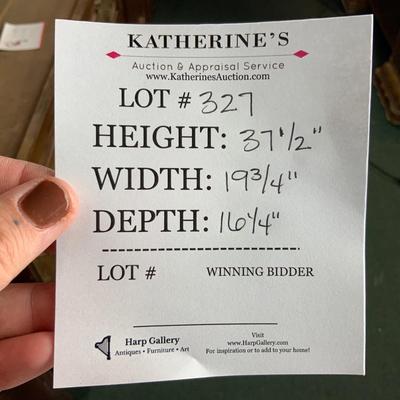 KATHERINE'S
Auction & Appraisal Service
www.KatherinesAuction.com
LOT # 327
HEIGHT: 37 1/2"
WIDTH: 19 3/4"
DEPTH: 16 1/4"
LOT # WINNING BIDDER
Harp Gallery
Antiques • Furniture • Art
Visit
www.HarpGallery.com
For inspiration or to add to your home!